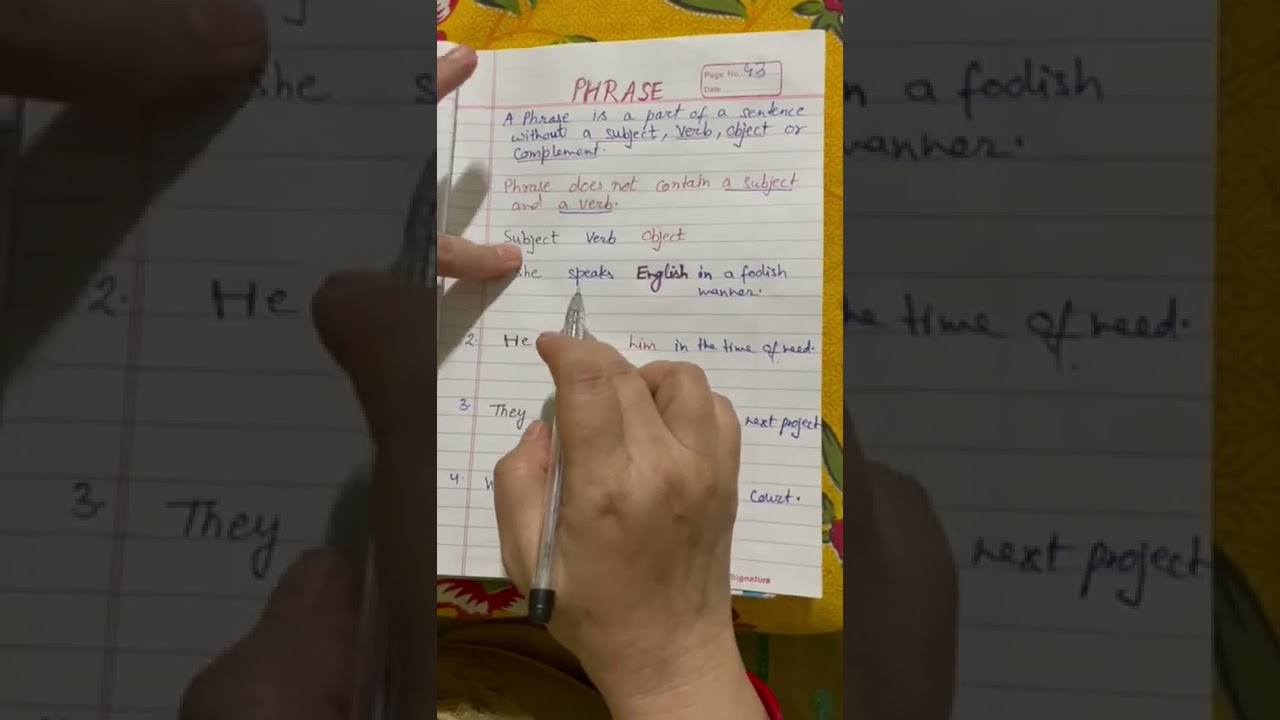 PHRASE
Page No. 43
Date
A Phrase is a part of a sentence
without a subject, verb, object or
complement.
Phrase does not contain a subject
and a verb.
Subject verb object
she speaks English in a foolish
manner.
2. He him in the time of need.
3. They next project
4. court.
Signature